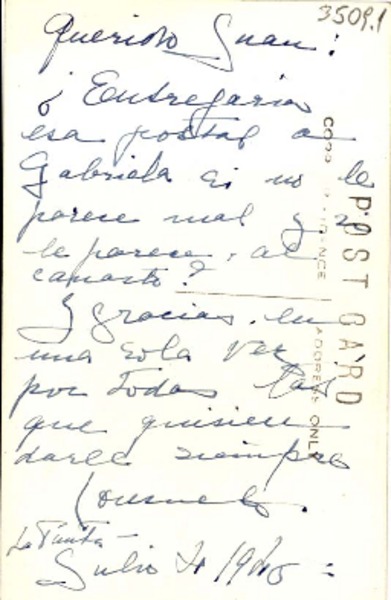 3509.1
Querido Juan:
¿Entregarías
esa postal a
Gabriela si no le
parece mal y si
le parece, al
canasto?
Y gracias, en
una sola vez
por todas las
que quisiera
darle siempre
Consuelo.
Julio 4 1945 =
POST CARD
CORRESPONDENCE
ADDRESS ONLY